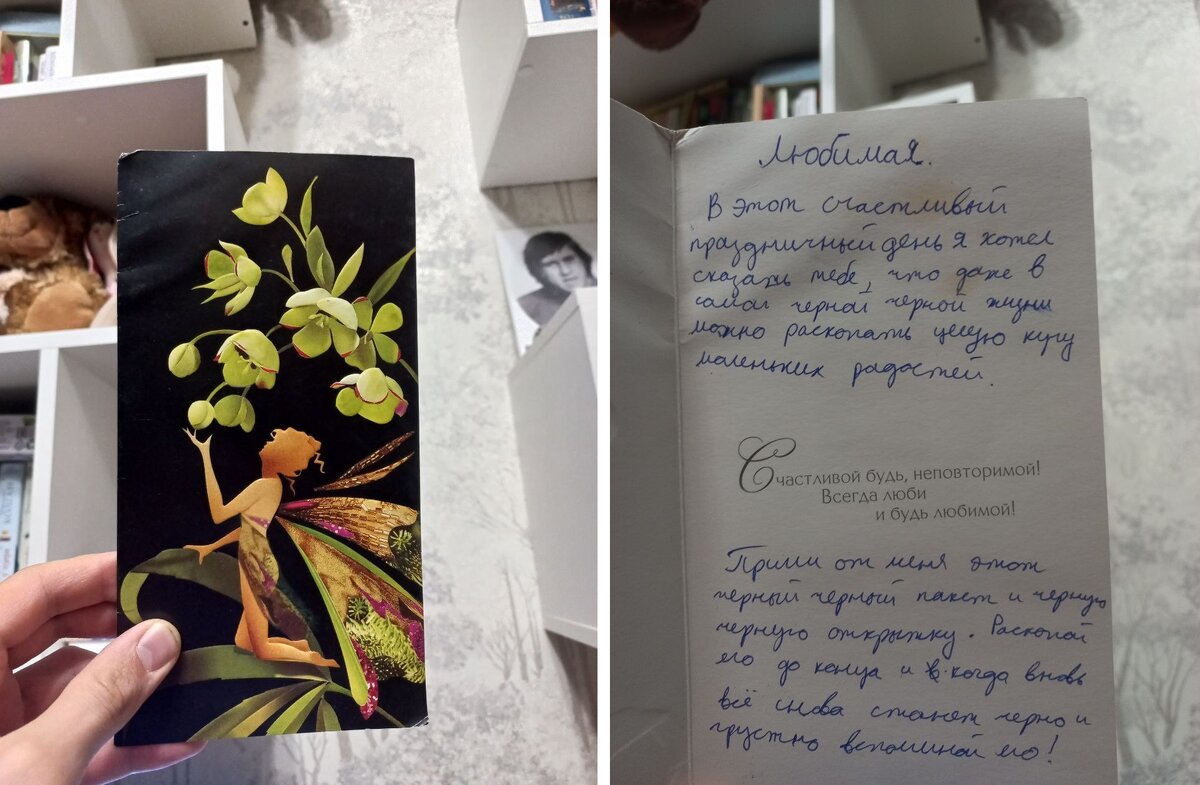 Любимая.
В этот счастливый
праздничный день я хотел
сказать тебе, что даже в
самой черной черной жизни
можно раскопать целую кучу
маленьких радостей.
Счастливой будь, неповторимой!
Всегда люби
и будь любимой!
Прими от меня этот
черный черный пакет и черную
черную открытку. Раскопай
его до конца и когда вновь
всё снова станет черно и
грустно вспоминай его!